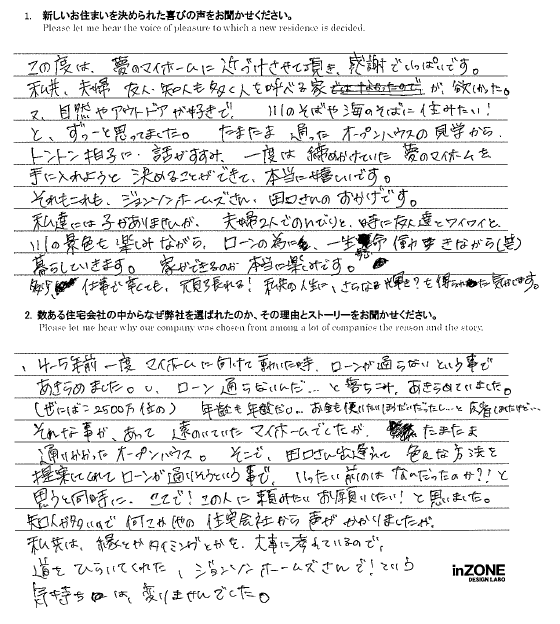 1. 新しいお住まいを決められた喜びの声をお聞かせください。
Please let me hear the voice of pleasure to which a new residence is decided.
この度は、夢のマイホームに近づけさせて頂き、感謝でいっぱいです。
私共、夫婦 友人・知人も多く人を呼べる家が、欲しかった。
又、自然やアウトドアが好きで、川のそばや海のそばに住みたい!
と、ずーっと思ってました。たまたま通ったオープンハウスの見学から、
トントン拍子に話がすすみ、一度は諦めかけていた夢のマイホームを
手に入れようと決めることができて、本当に嬉しいです。
それもこれも、ジョンソンホームズさん、田口さんのおかげです。
私達には子がありませんが、夫婦2人でのんびりと、時に友人達とワイワイと、
川の景色も楽しみながら、ローンの為にも、一生懸命働きながら(笑)
暮らしていきます。家ができるのが本当に楽しみです。
仕事が忙しくても、頑張れる!私共の人生に、さらなる輝き?を得られた気がします。
2. 数ある住宅会社の中からなぜ弊社を選ばれたのか、その理由とストーリーをお聞かせください。
Please let me hear why our company was chosen from among a lot of companies the reason and the story.
4~5年前一度マイホームに向けて動いた時、ローンが通らないという事で
あきらめました。ローン通らないんだ…と落ちこみ、あきらめていました。
(ぜにばこ2500万位の) 年齢も年齢だし…お金も使いたいほうだいだったし…と
それな事があって遠のいていたマイホームでしたが、たまたま
通りかかったオープンハウス。そこで、田口さんに出逢えて色々な方法を
提案してくれてローンが通りそうという事で、いったい前のはなんだったのか?!と
思うと同時に、ここで!この人に頼みたいお願いしたい!と思いました。
知人が多いので何件か他の住宅会社から声がかかりましたが、
私共は、縁とかタイミングとかを、大事に考えているので、
道をひらいてくれた、ジョンソンホームズさんで!という
気持ちは、変りませんでした。
inZONE
DESIGN LABO